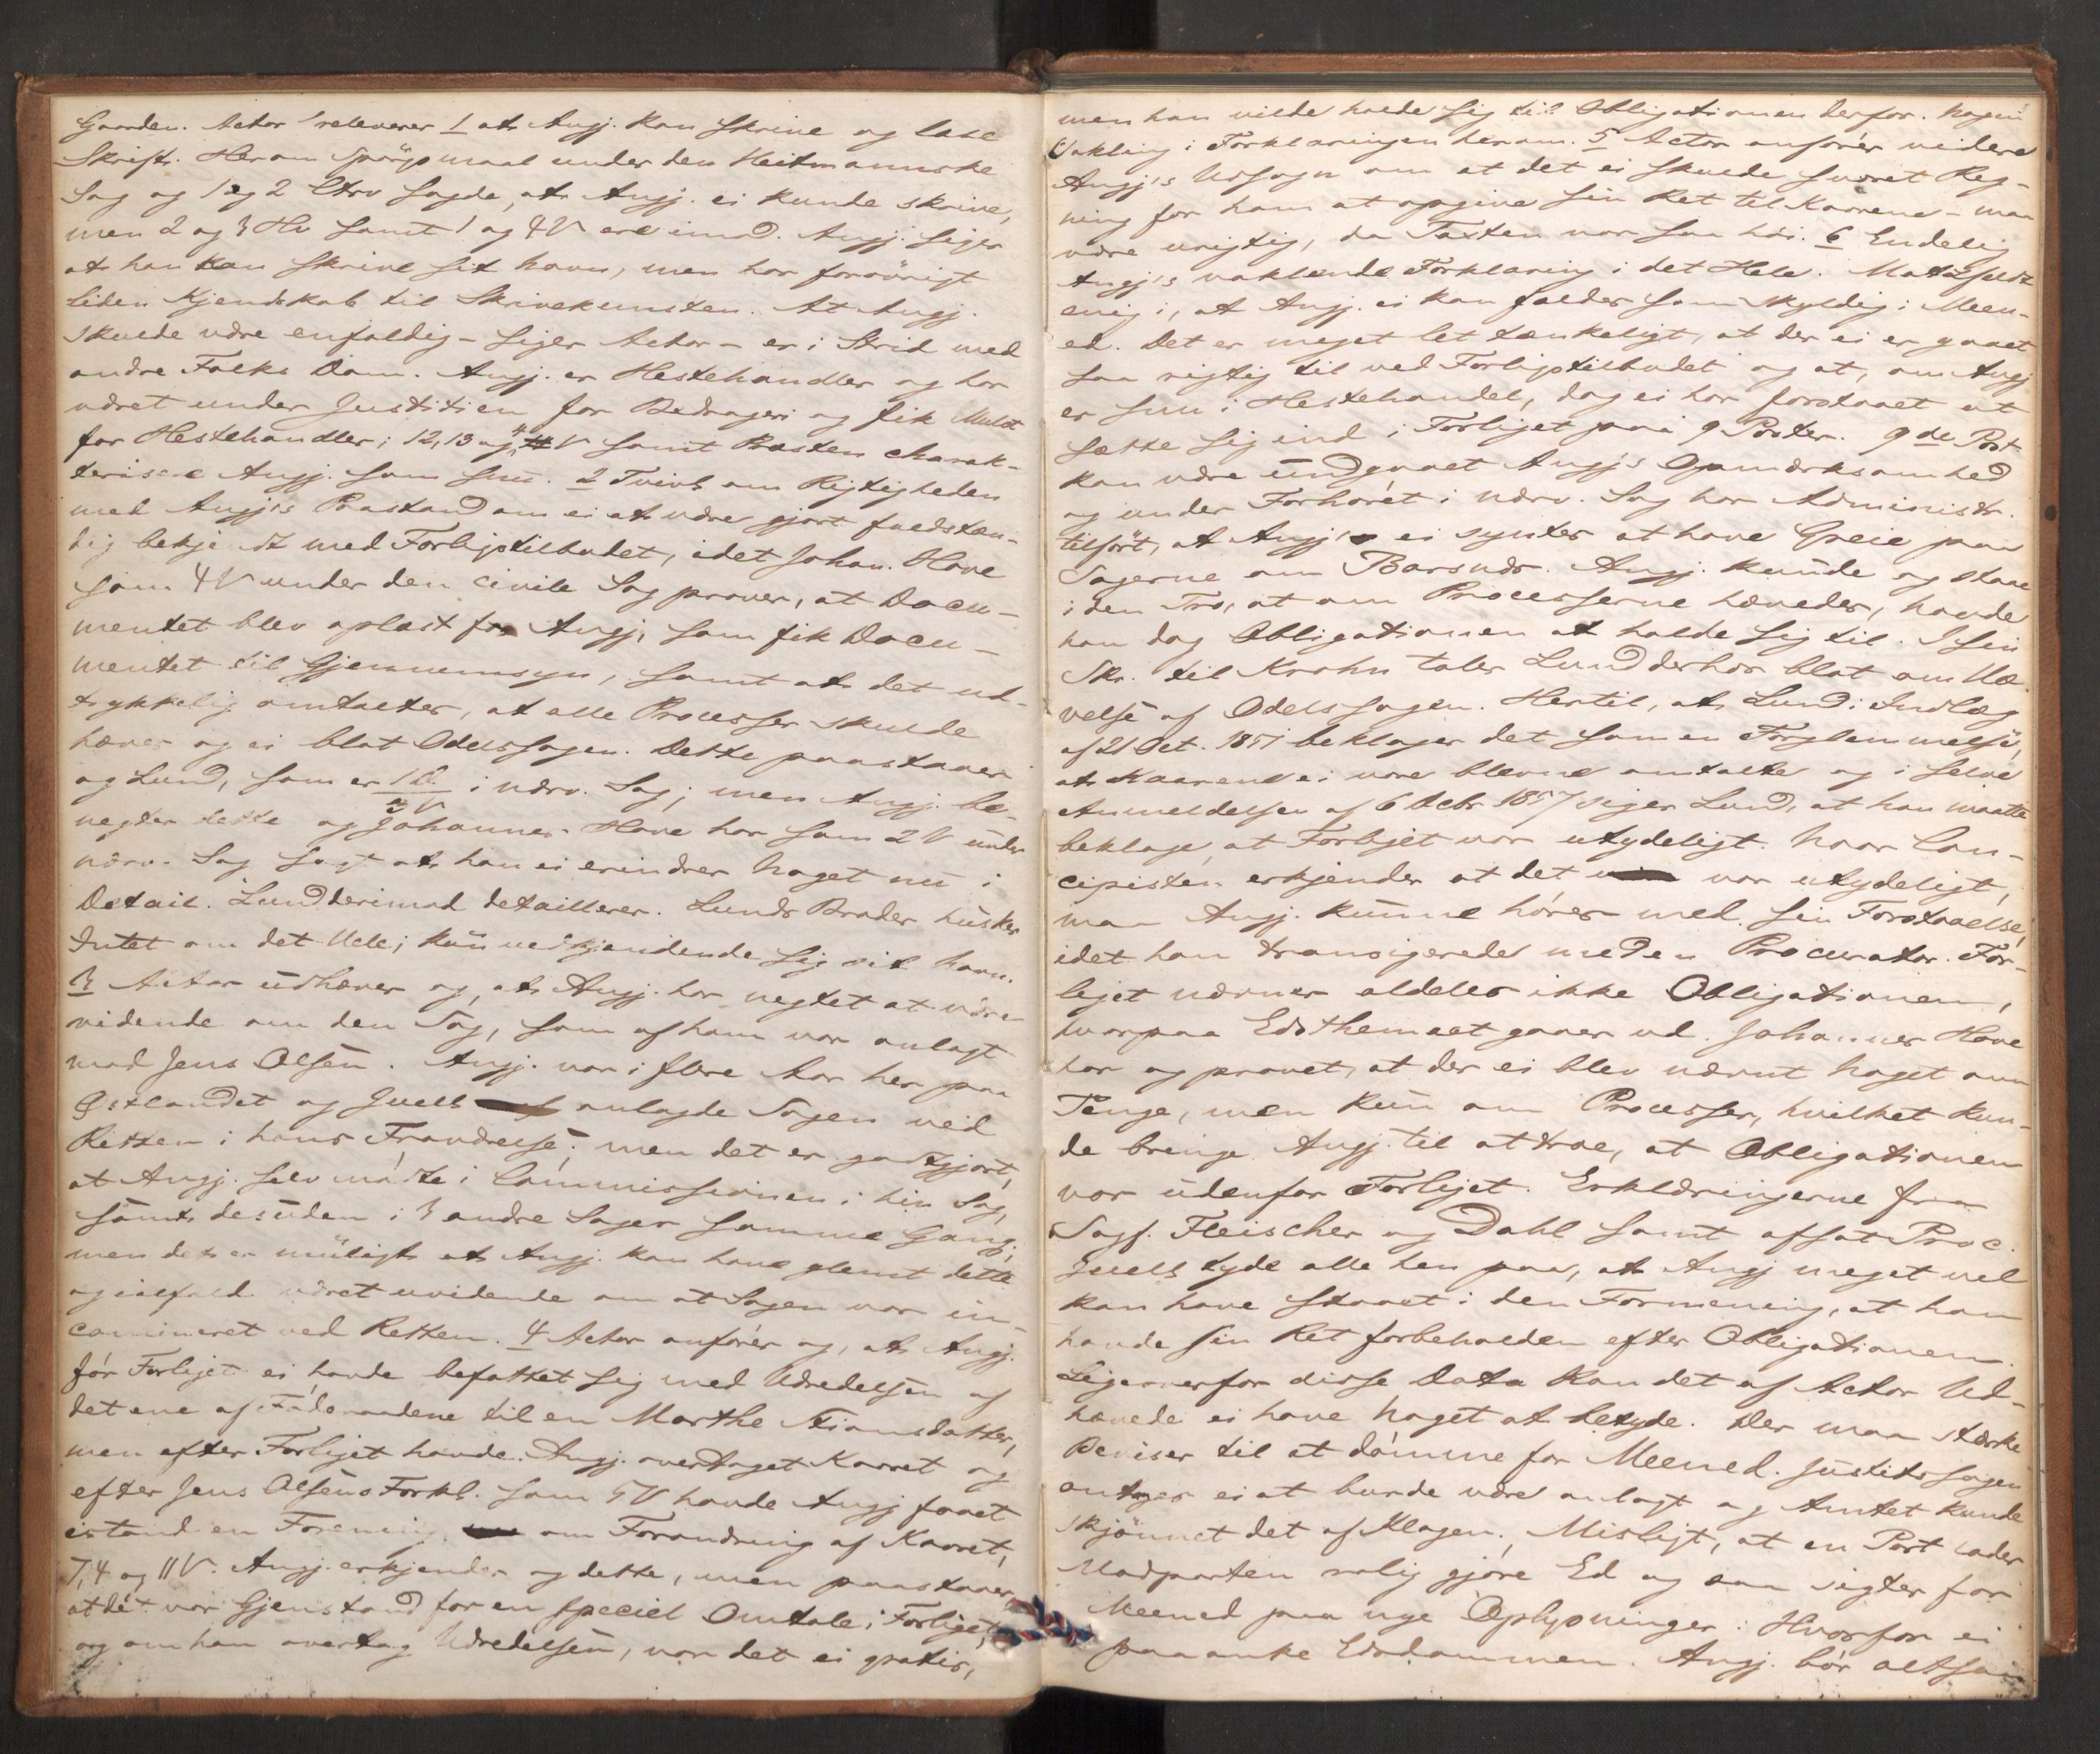 Gaarden. Actor releverer 1 at Angj. kan skrive og læse
Skrift. Herom Spörgsmaal under den Heitmannske
Sag og 1 og 2 Ctrv sagde, at Angj. ei kunde skrive,
men 2 og 3 Hv samt 1 og 4 V ere imod. Angj. siger
at han kan skrive sit Navn, men har forövrigt
liden Kjendskab til Skrivekunsten. At Angj.
skulde være enfoldig - siger Actor - er i Strid med
andre Folks Dom. Angj. er Hestehandler og har
været under Justitien for Bedrageri og fik Mulct
for Hestehandler; 12, 13 og 4 V samt Præsten charak-
terisere Angj. som snu. 2 Tvivl om Rigtigheden
med Angj's Paastand om ei at være gjort fuldstæn-
dig bekjendt med Forligstilbudet, idet Johan. Hove
som 4 V under den civile Sag prover, at Docu-
mentet blev oplæst for Angj, som fik Docu-
mentet til Gjennemsyn, samt at det ud-
trykkelig omtaltes, at alle Processer skulde
hæves og ei blot Odelssagen. Dette paastaaer
og Lund, som er 1 V i nærv. Sag; men Angj. be-
negter dette og Johannes Hove har som 2 V under
nærv. Sag sagt at han ei erindrer noget nu i
Detail. Lund derimod detaillerer. Lunds Broder husker
Intet om det Hele; kun vedkjendende sig sit Navn.
3 Actor udhæver og, at Angj. har negtet at være
vidende om den Sag, som af ham var anlagt
mod Jens Olsen. Angj. var i flere Aar her paa
Østlandet og Juell anlagde Sagen ved
Retten i hans Fraværelse; men det er godtgjort,
at Angj. selv mödte i Commissionen i hin Sag,
samt desuden i 3 andre Sager samme Gang;
men det er muligt at Angj. kan have glemt dette
og ialfald været uvidende om at Sagen var in-
camineret ved Retten. 4 Actor anförer og, at Angj.
för Forliget ei havde befattet sig med Udredelsen af
det ene af Föderaadene til en Marthe Stiansdatter,
men efter Forliget havde Angj. overtaget Kaaret og
efter Jens Olsens Forkl. som 5 V havde Angj faaet
istand en Forening om Forandring af Kaaret,
7, 4 og 11 V. Angj. erkjender og dette, men paastaaer,
at det var Gjenstand for en speciel Omtale i Forliget,
og om han overtog Udredelsen, var det ei gratis,
men han vilde holde sig til Obligationen derfor. Nogen
Vakling i Forklaringen herom. 5 Actor anförer videre
Angj's Udsagn om at det ei skulde svaret Reg-
ning for ham at opgive sin Ret til Kaarene - maa
være urigtig, da Taxten var saa höi. 6 Endelig
Angj's vaklende Forklaring i det Hele. Motzfeldt
enig i, at Angj. ei kan fældes som skyldig i Meen-
ed. Det er meget let tænkeligt, at der ei er gaaet
saa rigtig til ved Forligstilbudet og at, om Angj
er snu i Hestehandel, dog ei har forstaaet at
sætte sig ind i Forliget paa 9 Poster. 9de Post
kan være undgaaet Angj's Opmærksomhed
og under Forhöret i nærv. Sag har Administr.
tilfört, at Angj. ei syntes at have Greie paa
Sagerne om Barsnds. Angj. kunde og staae
i den Tro, at om Processerne hævedes, havde
han dog Obligationen at holde sig til. I sin
Skr. til Krohn taler Lund derhos blot om Hæ-
velse af Odelssagen. Hertil, at Lund i Indlæg
af 21 Oct. 1857 beklager det som en Forglemmelse,
at Kaarene ei vare blevne omtalte og i selve
Anmeldelsen af 6 Decbr 1857 siger Lund, at han maatte
beklage, at Forliget var utydeligt. Naar Con-
cipisten erkjender at det var utydeligt,
maa Angj. kunne höres med sin Forstaaelse,
idet han transigerede med en Procurator. For-
liget nævner aldeles ikke Obligationen,
hvorpaa Edsthemaet gaaer ud. Johannes Hove
har og provet, at der ei blev nævnt Noget om
Penge, men kun om Processer, hvilket kun-
de bringe Angj. til at troe, at Obligationen
var udenfor Forliget. Erklæringerne fra
Sagf. Fleischer og Dahl samt afsat Proc.
Juell tyde alle hen paa, at Angj meget vel
kan have staaet i den Formening, at han
havde sin Ret forbeholden efter Obligationen.
Ligeoverfor disse Data kan det af Actor Ud-
hævede ei have Noget at betyde. Der maa stærke
Beviser til at dömme for Meened. Justitssagen
antages ei at burde være anlagt og Amtet kunde
skjönnet det af Klagen. Misligt, at en Part lader
Modparten rolig gjöre Ed og saa sigter for
Meened paa nye Oplysninger. Hvorfor ei
paaanke Edsdommen. Angj. bör altsaa